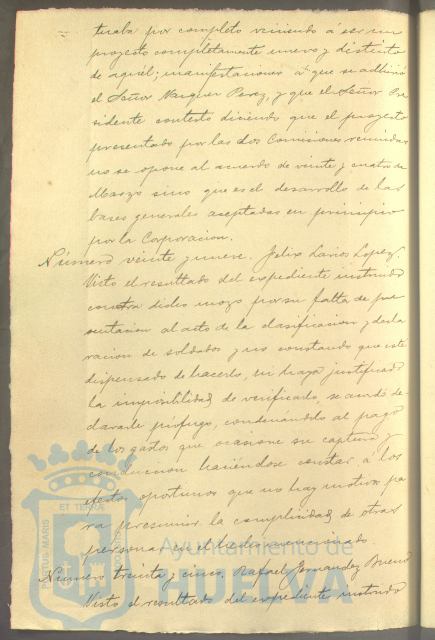 turaba por completo viniendo á ser un
proyecto completamente nuevo y distinto
de aquél; manifestaciones á que se adhirió
el Señor Vazquez Perez, y que el Señor Pre
sidente contestó diciendo que el proyecto
presentado por las dos Comisiones reunidas
no se opone al acuerdo de veinte y cuatro de
Marzo sino que es el desarrollo de las
bases generales aceptadas en principio
por la Corporacion.
Número veinte y nueve. Felix Larios Lopez.
Visto el resultado del expediente instruido
contra dicho mozo por su falta de pre
sentacion al acto de la clasificacion y decla
racion de soldados y no constando que esté
dispensado de hacerlo, ni haya justificado
la imposibilidad de verificarlo, se acordó de
clararle prófugo, condenándolo al pago
de los gastos que ocasione su captura y
conduccion haciéndose constar á los
efectos oportunos que no hay motivo pa
ra presumir la complicidad de otras
personas en el hecho mencionado.
Número treinta y cinco. Rafael Fernandez Bueno
Visto el resultado del expediente instruido
PORTUS MARIS
ET TERRAE
Ayuntamiento de
HUELVA